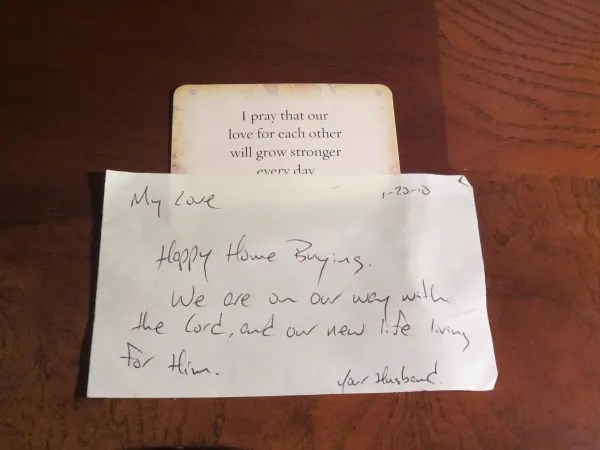 I pray that our
love for each other
will grow stronger
every day
My Love 1-20-10
Happy Home Buying.
We are on our way with
the Lord, and our new life living
for Him.
Your Husband